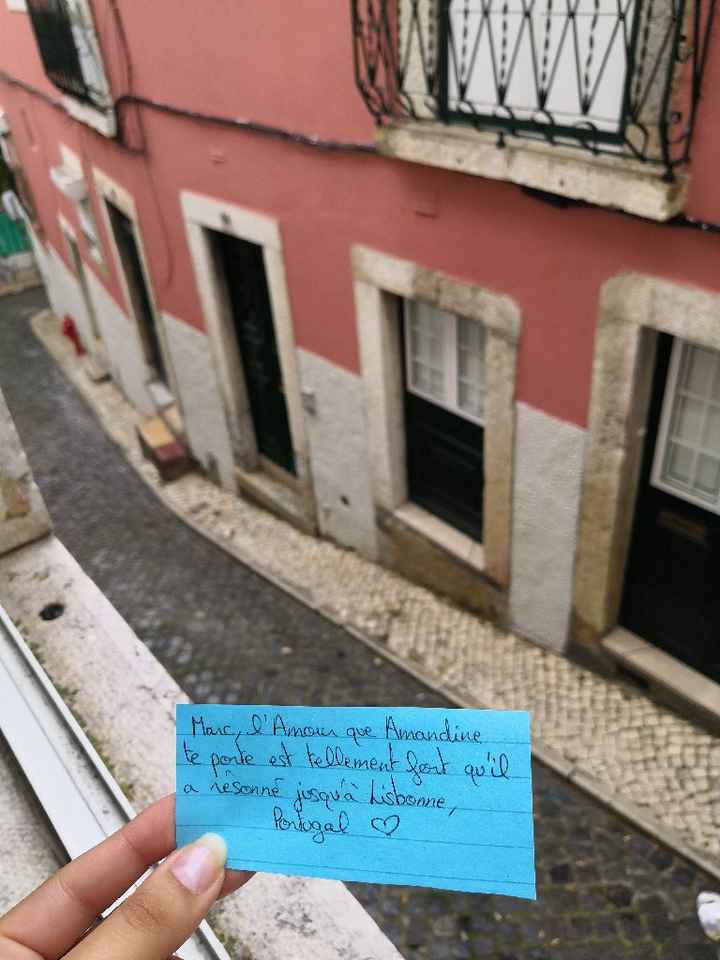 Marc, l'Amour que Amandine
te porte est tellement fort qu'il
a résonné jusqu'à Lisbonne,
Portugal ♡